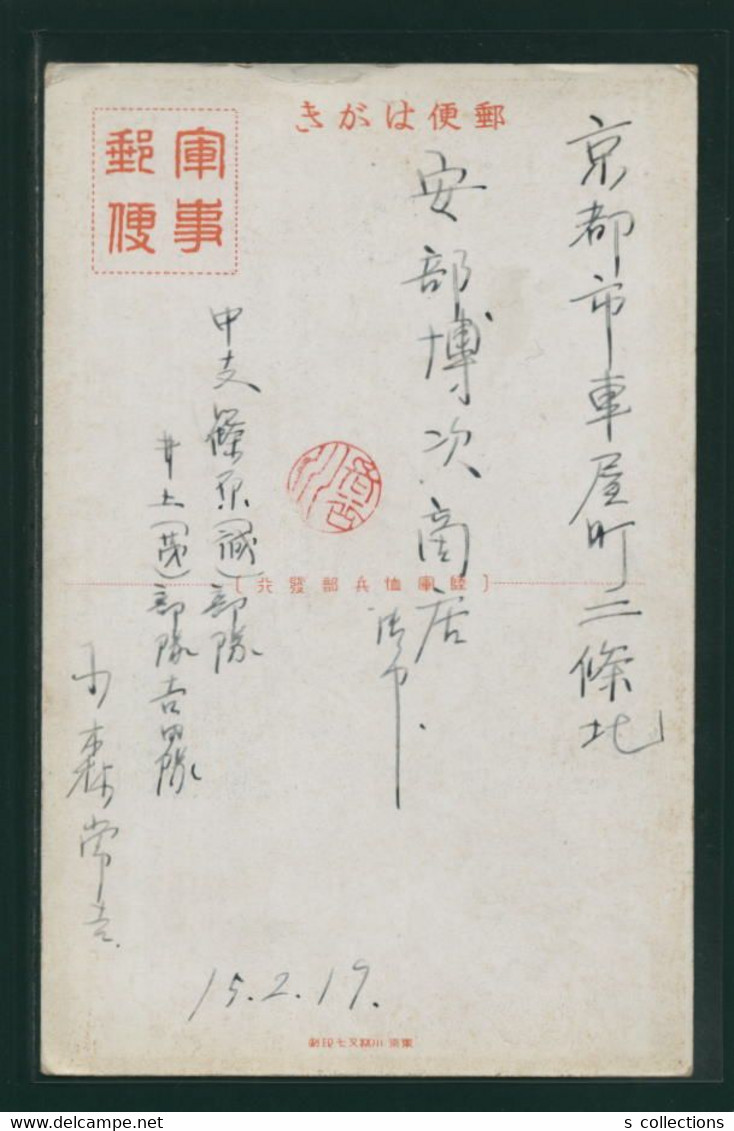 郵便はがき
軍事
郵便
京都市車屋町二條北
安部博次商店
御中
中支篠原(誠)部隊
井上(茂)部隊吉田隊
小森常吉
(陸軍恤兵部發行)
15.2.19.
s collections